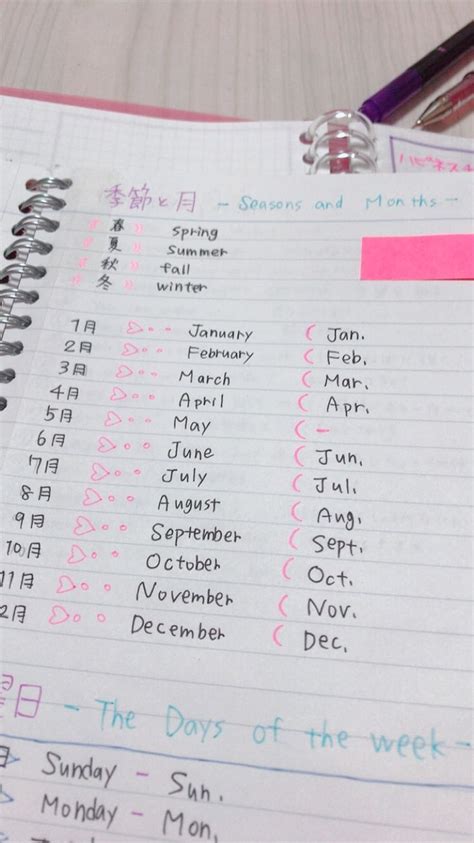 ハピネスチ
季節と月 - Seasons and Months -
春 》 spring
夏 》 summer
秋 》 fall
冬 》 winter
1月 January ( Jan.
2月 February ( Feb.
3月 March ( Mar.
4月 April ( Apr.
5月 May ( -
6月 June ( Jun.
7月 July ( Jul.
8月 August ( Aug.
9月 September ( Sept.
10月 October ( Oct.
11月 November ( Nov.
2月 December ( Dec.
曜日 - The Days of the week -
Sunday - Sun.
Monday - Mon.